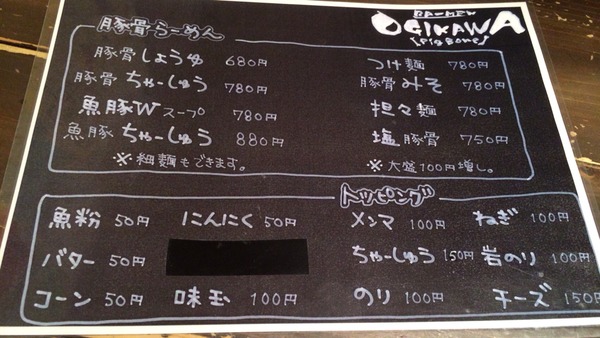 RA-MEN
OGIKAWA
[Pig Bone]
豚骨らーめん
豚骨しょうゆ 680円
豚骨ちゃーしゅう 780円
魚豚Wスープ 780円
魚豚ちゃーしゅう 880円
※細麺もできます。
つけ麺 780円
豚骨みそ 780円
担々麺 780円
塩豚骨 750円
※大盛100円増し。
トッピング
魚粉 50円 にんにく 50円 メンマ 100円 ねぎ 100円
バター 50円 ちゃーしゅう 150円 岩のり 100円
コーン 50円 味玉 100円 のり 100円 チーズ 150円